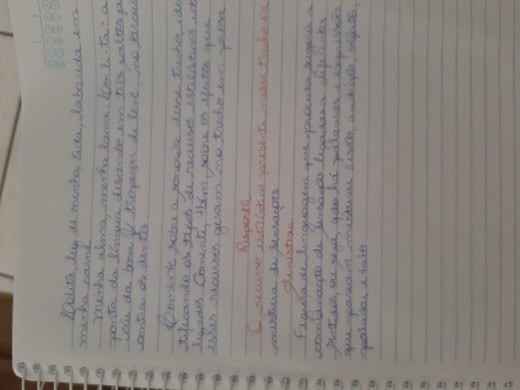 Lolita, luz de minha vida, labareda em
minha carne
Minha alma, minha lama. Lo-li-ta: a
ponta da língua descendo em três saltos p
céu da boca p/ tropeçar de leve, no terceir
contra os dentes
Comente sobre a sonoria desse trecho ide
tificando os tipos de recursos estilísticos ut
lizados. Comente, tbm, sobre os efeitos que
esses recursos geram no trecho em prosa
Resposta
O recurso estilístico presente nesse trecho é a
mistura de sensações
Figura de linguagem que procura sugerir a
combinação de sensações ligadas a diferentes
sentidos, ou seja, que há palavras e expressões
que possam misturar visão, audição, olfato,
paladar e tato